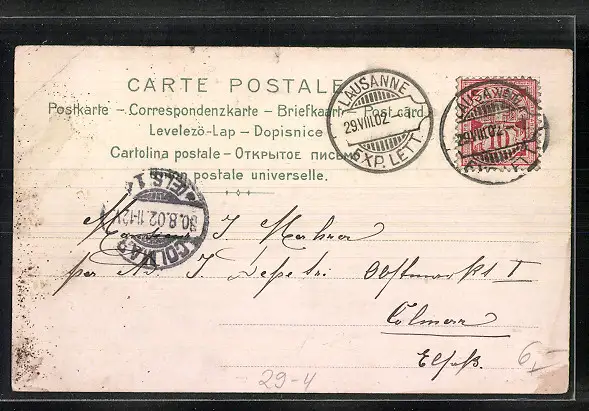 CARTE POSTALE
Postkarte – Correspondenzkarte – Briefkaart – Post card
Levelező-Lap – Dopisnice
Cartolina postale – ОТКРЫТОЕ ПИСЬМО
postale universelle.
LAUSANNE
29.VIII.02
EXP. LETT.
LAUSANNE
29.VIII.02
10
COLMAR
30.8.02.11-12V
(ELS.)
J
per Ad. J.
Colmar
Elsaß.
6,-
29-4